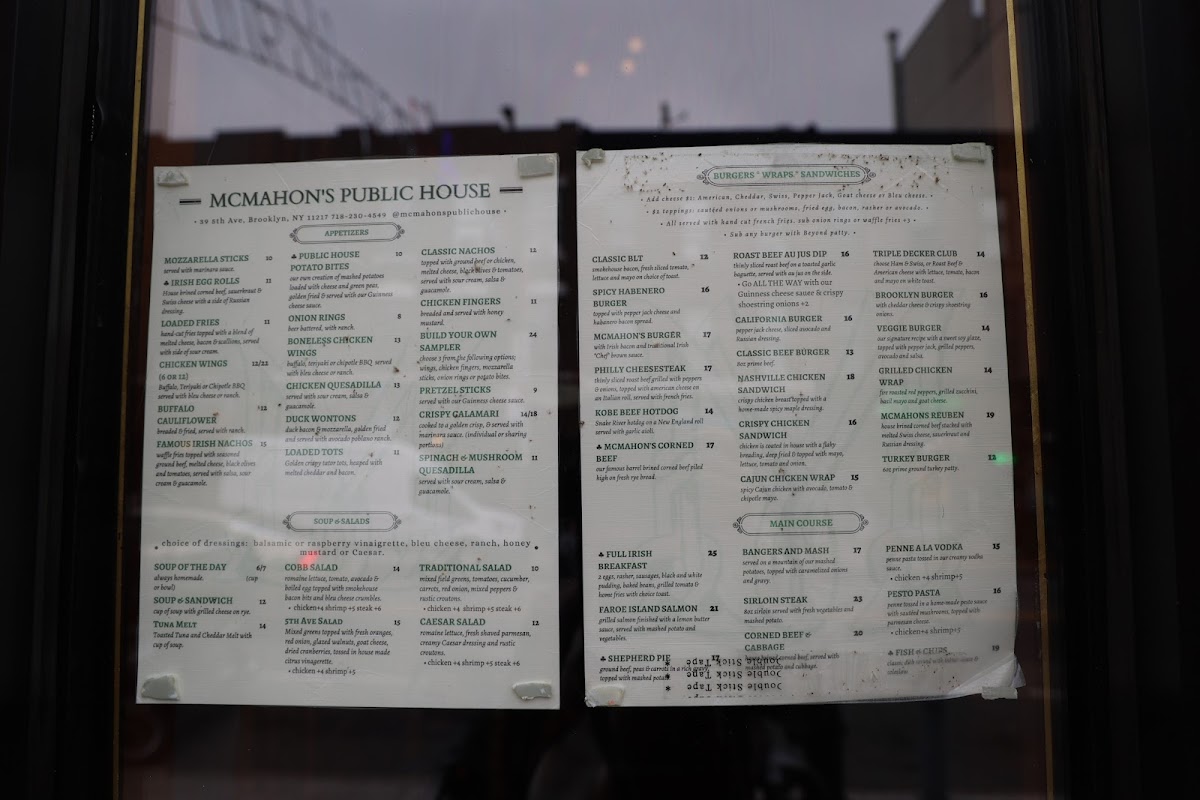 MCMAHON'S PUBLIC HOUSE
• 39 5th Ave, Brooklyn, NY 11217 718-230-4549 @mcmahonspublichouse •
APPETIZERS
MOZZARELLA STICKS 10
served with marinara sauce.
♣ IRISH EGG ROLLS 11
House brined corned beef, sauerkraut &
Swiss cheese with a side of Russian
dressing.
LOADED FRIES 11
hand-cut fries topped with a blend of
melted cheese, bacon & scallions, served
with side of sour cream.
CHICKEN WINGS 12/22
(6 OR 12)
Buffalo, Teriyaki or Chipotle BBQ
served with bleu cheese or ranch.
BUFFALO 12
CAULIFLOWER
breaded & fried, served with ranch.
FAMOUS IRISH NACHOS 15
waffle fries topped with seasoned
ground beef, melted cheese, black olives
and tomatoes, served with salsa, sour
cream & guacamole.
♣ PUBLIC HOUSE 10
POTATO BITES
our own creation of mashed potatoes
loaded with cheese and green peas,
golden fried & served with our Guinness
cheese sauce.
ONION RINGS 8
beer battered, with ranch.
BONELESS CHICKEN 13
WINGS
buffalo, teriyaki or chipotle BBQ served
with bleu cheese or ranch.
CHICKEN QUESADILLA 13
served with sour cream, salsa &
guacamole.
DUCK WONTONS 12
duck bacon & mozzarella, golden fried
and served with avocado poblano ranch.
LOADED TOTS 11
Golden crispy tater tots, heaped with
melted cheddar and bacon.
CLASSIC NACHOS 12
topped with ground beef or chicken,
melted cheese, black olives & tomatoes,
served with sour cream, salsa &
guacamole.
CHICKEN FINGERS 11
breaded and served with honey
mustard.
BUILD YOUR OWN 24
SAMPLER
choose 3 from the following options;
wings, chicken fingers, mozzarella
sticks, onion rings or potato bites.
PRETZEL STICKS 9
served with our Guinness cheese sauce.
CRISPY CALAMARI 14/18
cooked to a golden crisp, & served with
marinara sauce. (individual or sharing
portions)
SPINACH & MUSHROOM 11
QUESADILLA
served with sour cream, salsa &
guacamole.
SOUP & SALADS
• choice of dressings: balsamic or raspberry vinaigrette, bleu cheese, ranch, honey •
mustard or Caesar.
SOUP OF THE DAY 6/7
always homemade. (cup
or bowl)
SOUP & SANDWICH 12
cup of soup with grilled cheese on rye.
TUNA MELT 14
Toasted Tuna and Cheddar Melt with
cup of soup.
COBB SALAD 14
romaine lettuce, tomato, avocado &
boiled egg topped with smokehouse
bacon bits and bleu cheese crumbles.
• chicken+4 shrimp +5 steak +6
5TH AVE SALAD 15
Mixed greens topped with fresh oranges,
red onion, glazed walnuts, goat cheese,
dried cranberries, tossed in house made
citrus vinagerette.
• chicken+4 shrimp +5
TRADITIONAL SALAD 10
mixed field greens, tomatoes, cucumber,
carrots, red onion, mixed peppers &
rustic croutons.
• chicken +4 shrimp +5 steak +6
CAESAR SALAD 12
romaine lettuce, fresh shaved parmesan,
creamy Caesar dressing and rustic
croutons.
• chicken +4 shrimp +5 steak +6
BURGERS * WRAPS * SANDWICHES
• Add cheese $1: American, Cheddar, Swiss, Pepper Jack, Goat cheese or Bleu cheese. •
• $2 toppings: sauteed onions or mushrooms, fried egg, bacon, rasher or avocado. •
• All served with hand cut french fries, sub onion rings or waffle fries +3 •
• Sub any burger with Beyond patty. •
CLASSIC BLT 12
smokehouse bacon, fresh sliced tomato,
lettuce and mayo on choice of toast.
SPICY HABENERO 16
BURGER
topped with pepper jack cheese and
habanero bacon spread.
MCMAHON'S BURGER 17
with Irish bacon and traditional Irish
"Chef" brown sauce.
PHILLY CHEESESTEAK 17
thinly sliced roast beef grilled with peppers
& onions, topped with american cheese on
an Italian roll, served with french fries.
KOBE BEEF HOTDOG 14
Snake River hotdog on a New England roll
served with garlic aioli.
♣ MCMAHON'S CORNED 17
BEEF
our famous barrel brined corned beef piled
high on fresh rye bread.
ROAST BEEF AU JUS DIP 16
thinly sliced roast beef on a toasted garlic
baguette, served with au jus on the side.
• Go ALL THE WAY with our
Guinness cheese sauce & crispy
shoestring onions +2
CALIFORNIA BURGER 16
pepper jack cheese, sliced avocado and
Russian dressing.
CLASSIC BEEF BURGER 13
6oz prime beef.
NASHVILLE CHICKEN 18
SANDWICH
crispy chicken breast topped with a
home-made spicy maple dressing.
CRISPY CHICKEN 16
SANDWICH
chicken is coated in house with a flaky
breading, deep fried & topped with mayo,
lettuce, tomato and onion.
CAJUN CHICKEN WRAP 15
spicy Cajun chicken with avocado, tomato &
chipotle mayo.
TRIPLE DECKER CLUB 14
choose Ham & Swiss, or Roast Beef &
American cheese with lettuce, tomato, bacon
and mayo on white toast.
BROOKLYN BURGER 16
with cheddar cheese & crispy shoestring
onions.
VEGGIE BURGER 14
our signature recipe with a sweet soy glaze,
topped with pepper jack, grilled peppers,
avocado and salsa.
GRILLED CHICKEN 14
WRAP
fire roasted red peppers, grilled zucchini,
basil mayo and goat cheese.
MCMAHONS REUBEN 19
house brined corned beef stacked with
melted Swiss cheese, sauerkraut and
Russian dressing.
TURKEY BURGER 12
6oz prime ground turkey patty.
MAIN COURSE
♣ FULL IRISH 25
BREAKFAST
2 eggs, rasher, sausages, black and white
pudding, baked beans, grilled tomato &
home fries with choice toast.
FAROE ISLAND SALMON 21
grilled salmon finished with a lemon butter
sauce, served with mashed potato and
vegetables.
♣ SHEPHERD PIE 17
ground beef, peas & carrots in a rich gravy,
topped with mashed potato.
BANGERS AND MASH 17
served on a mountain of our mashed
potatoes, topped with caramelized onions
and gravy.
SIRLOIN STEAK 23
8oz sirloin served with fresh vegetables and
mashed potato.
CORNED BEEF & 20
CABBAGE
house brined corned beef, served with
mashed potato and cabbage.
PENNE A LA VODKA 15
penne pasta tossed in our creamy vodka
sauce.
• chicken +4 shrimp+5
PESTO PASTA 16
penne tossed in a home-made pesto sauce
with sautéed mushrooms, topped with
parmesan cheese.
• chicken+4 shrimp+5
♣ FISH & CHIPS 19
classic dish served with tartar sauce &
coleslaw.
* Double Stick Tape Double Stick Tape
* Double Stick Tape Double Stick Tape
* Double Stick Tape Double Stick Tape